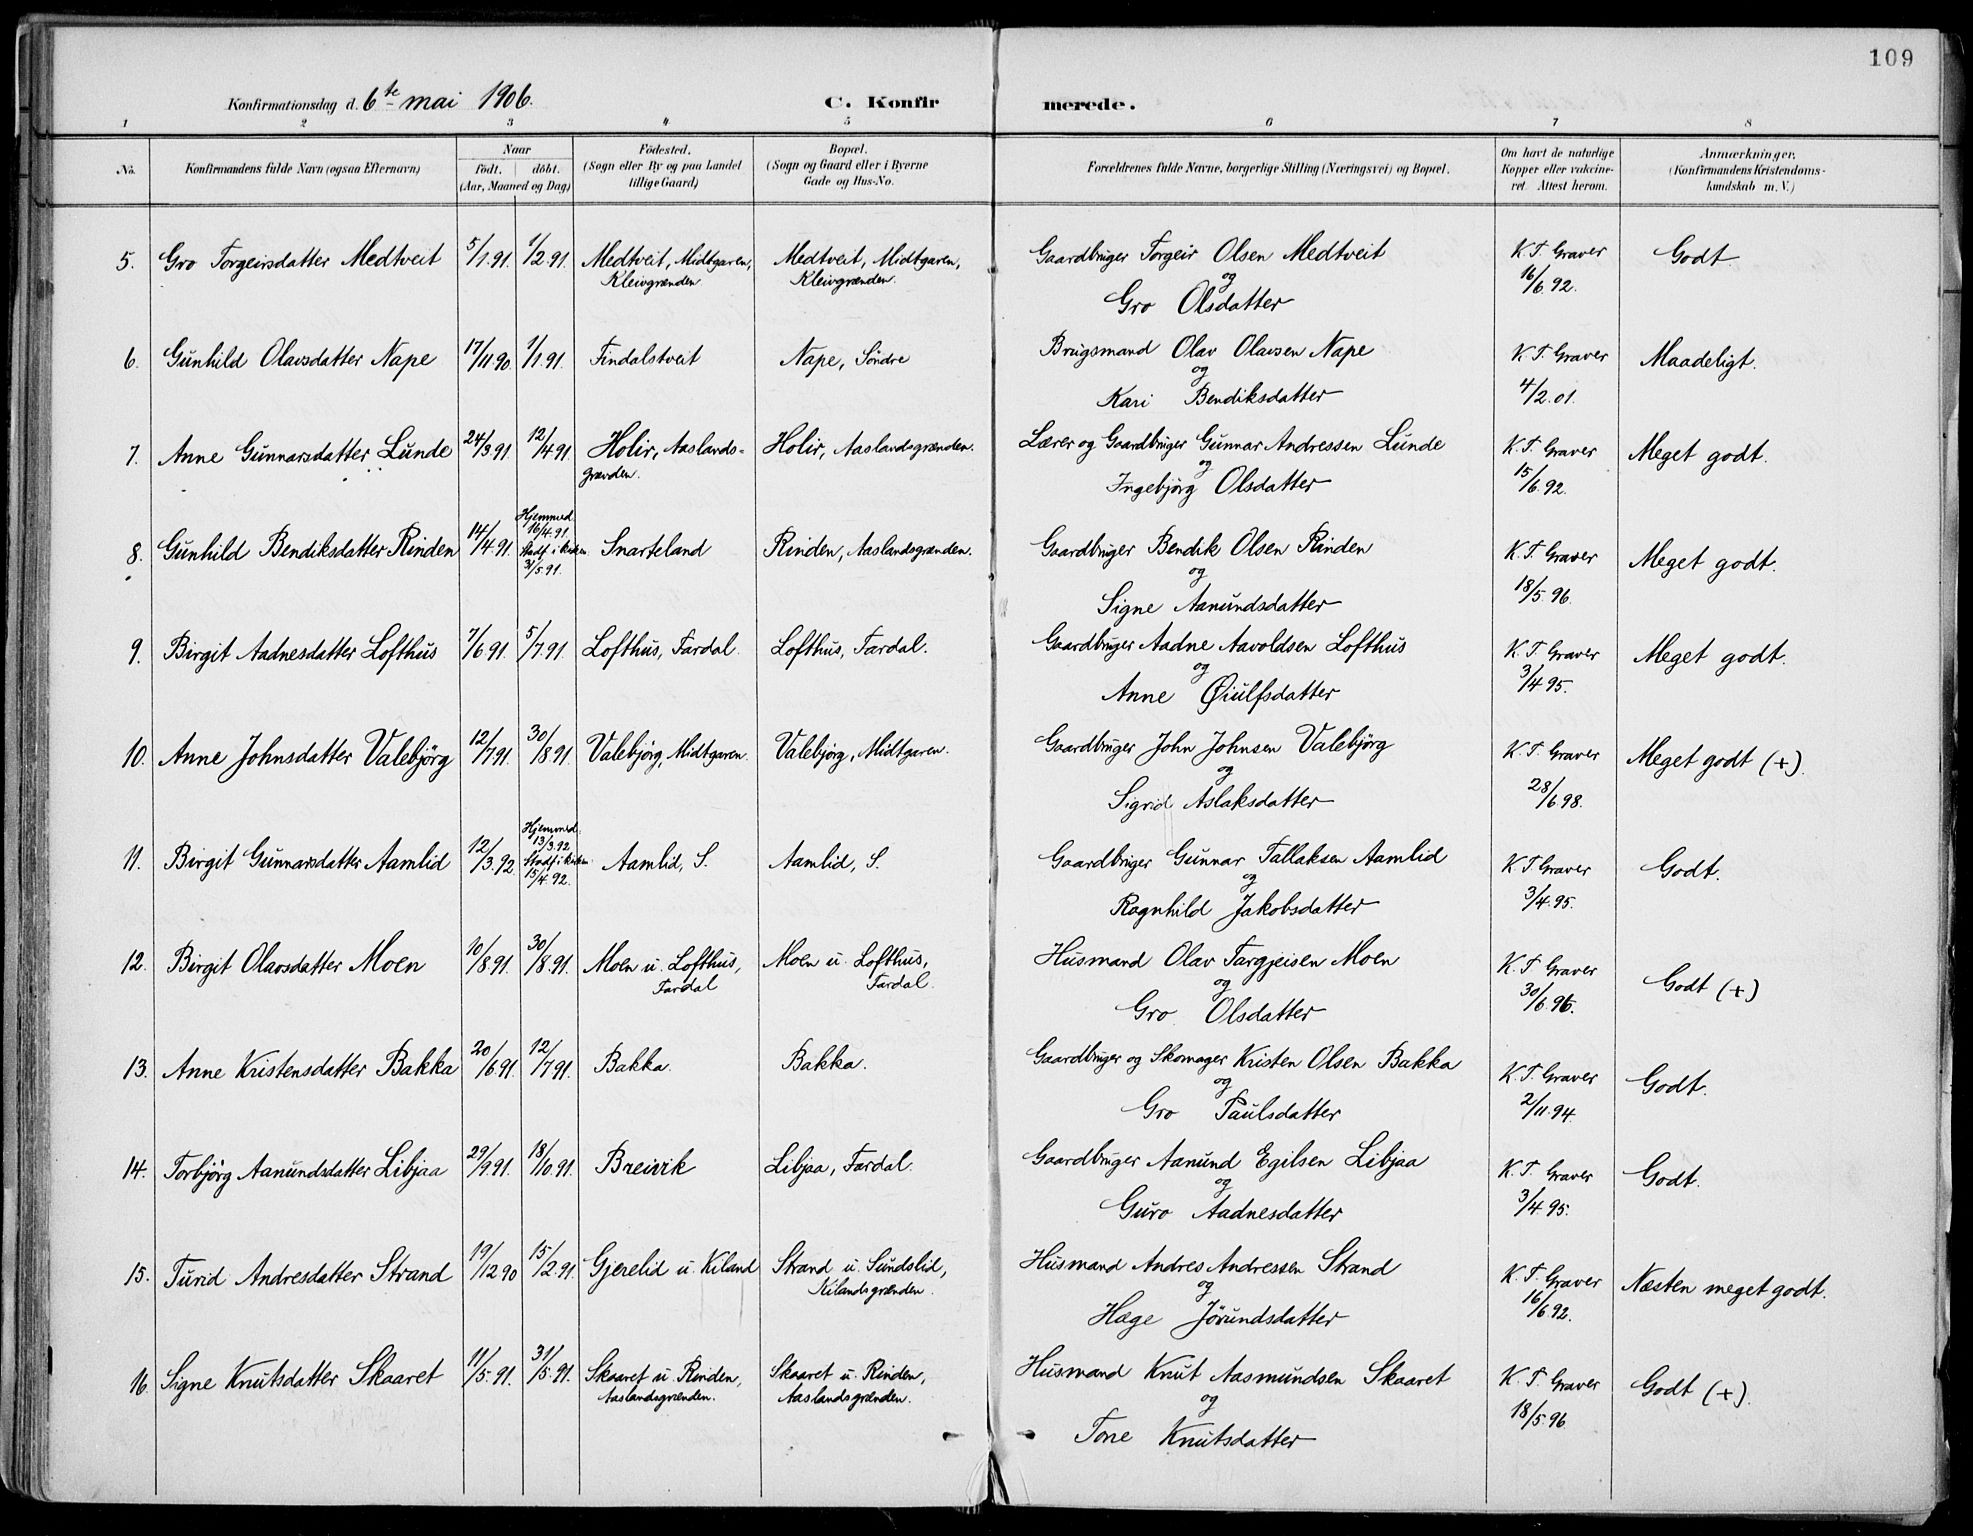 109
Konfirmationsdag d. 6te mai 1906. C. Konfirmerede.
1 2 3 4 5 6 7 8
No. Konfirmandens fulde Navn (ogsaa Efternavn) Naar födt. döbt. (Aar, Maaned og Dag) Födested. (Sogn eller By og paa Landet tillige Gaard) Bopæl. (Sogn og Gaard eller i Byerne Gade og Hus-No. Forældrenes fulde Navne, borgerlige Stilling (Næringsvei) og Bopæl. Om havt de naturlige Kopper eller vakcineret. Attest herom. Anmærkninger. (Konfirmandens Kristendomskundskab m. V.)
5. Gro Torgeirsdatter Medtveit 5/1.91. 1/2.91. Medtveit, Midtgaren, Medtveit, Midtgaren, Gaardbruger Torgeir Olsen Medtveit K. T. Graver Godt.
Kleivgrænden Kleivgrænden. og 16/6.92.
Gro Olsdatter
6. Gunhild Olavsdatter Nape 17/11.90. 1/1.91. Findalstveit Nape, Söndre Brugsmand Olav Olavsen Nape K. T. Graver Maadeligt.
og
Kari Bendiksdatter 4/2.01.
7. Anne Gunnarsdatter Lunde 24/3.91. 12/4.91 Holir, Aaslands- Holir, Aaslandsgrænden. Lærer og Gaardbruger Gunnar Andressen Lunde K. T. Graver Meget godt.
grænden. og 15/6.92.
Ingebjörg Olsdatter
Hjemmed.
16/4.91.
8. Gunhild Bendiksdatter Rinden 14/4.91. Stadf. i kirken Snarteland Rinden, Aaslandsgrænden. Gaardbruger Bendik Olsen Rinden K. T. Graver Meget godt.
31/5.91. og 18/5.96.
Signe Aanundsdatter
9. Birgit Aadnesdatter Lofthus 7/6.91. 5/7.91. Lofthus, Fardal. Lofthus, Fardal. Gaardbruger Aadne Aavoldsen Lofthus K. T. Graver Meget godt.
og 3/4.95.
Anne Øiulfsdatter
10. Anne Johnsdatter Valebjörg 12/7.91. 30/8.91. Valebjörg, Midtgaren. Valebjörg, Midtgaren. Gaardbruger John Johnsen Valebjörg K. T. Graver Meget godt (+).
og 28/6.98.
Sigrid Aslaksdatter
Hjemmed.
13/3.92.
11. Birgit Gunnarsdatter Aamlid 12/3.92. Stadf. i kirken Aamlid, S. Aamlid, S. Gaardbruger Gunnar Tallaksen Aamlid K. T. Graver Godt.
15/4.92. og 3/4.95.
Ragnhild Jakobsdatter
12. Birgit Olavsdatter Moen 10/8.91. 30/8.91. Moen u. Lofthus, Moen u. Lofthus, Husmand Olav Targjeisen Moen K. T. Graver Godt (+)
Fardal Fardal. og 30/6.96.
Gro Olsdatter
13. Anne Kristensdatter Bakka 20/6.91. 12/7.91. Bakka. Bakka. Gaardbruger og Skomager Kristen Olsen Bakka K. T. Graver Godt.
og 2/11.94.
Gro Paulsdatter
14. Torbjörg Aanundsdatter Libjaa 29/9.91. 18/10.91. Breivik Libjaa, Fardal. Gaardbruger Aanund Egilsen Libjaa K. T. Graver Godt.
og 3/4.95.
Guro Aadnesdatter
15. Turid Andresdatter Strand 19/12.90 15/2.91. Gjerelid u. Kiland Strand u. Sundslid, Husmand Andres Andressen Strand K. T. Graver Næsten meget godt.
Kilandsgrænden. og 16/6.92.
Hæge Jörundsdatter
16. Signe Knutsdatter Skaaret 11/5.91. 31/5.91. Skaaret u. Rinden, Skaaret u. Rinden, Husmand Knut Aasmundsen Skaaret K. T. Graver Godt (+).
Aaslandsgrænden. Aaslandsgrænden. og 18/5.96
Tone Knutsdatter